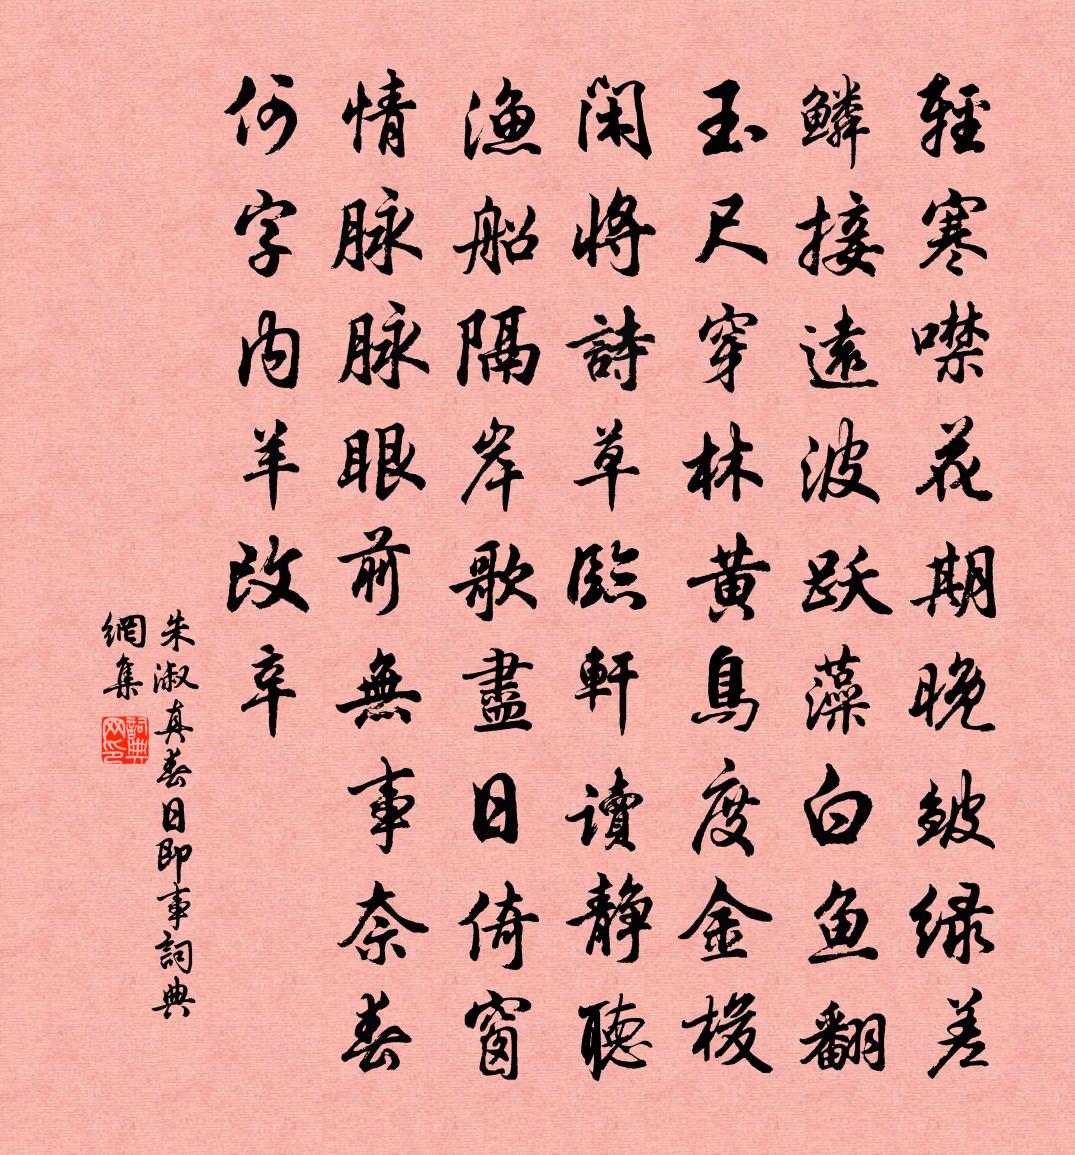 輕寒噤花期晚皱绿差
鳞接遠波跃藻白鱼翻
玉尺穿林黄鳥度金梭
闲將詩草臨軒讀靜聽
渔船隔岸歌盡日倚窗
情脉脉眼前無事奈春
何字内羊改辛
朱淑真春日即事詞典
網集
詞典
网印